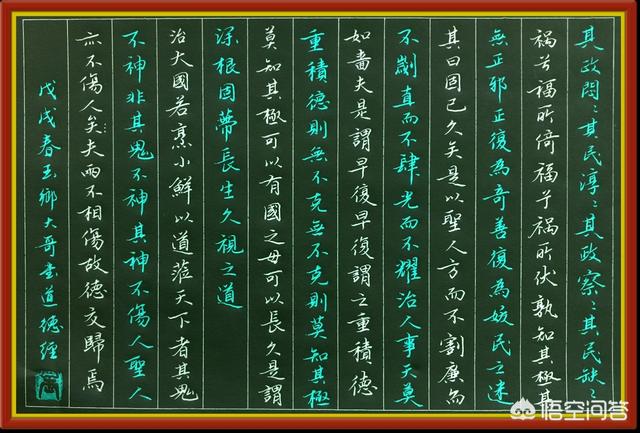 其政悶〻其民淳〻其政察〻其民缺〻
祸兮福所倚福兮祸所伏孰知其極其
無正邪正復為奇善復為妖民之迷
其日固已久矣是以聖人方而不割廉而
不劌直而不肆光而不耀治人事天莫
如嗇夫是謂早復早復謂之重積德
重積德則無不克無不克則莫知其極
莫知其極可以有國之母可以長久是謂
深根固蒂長生久視之道
治大國若烹小鮮以道蒞天下者其鬼
不神非其鬼不神其神不傷人聖人
亦不傷人矣夫兩不相傷故德交歸焉
戊戌春玉鄉大哥書道德經
悟空问答